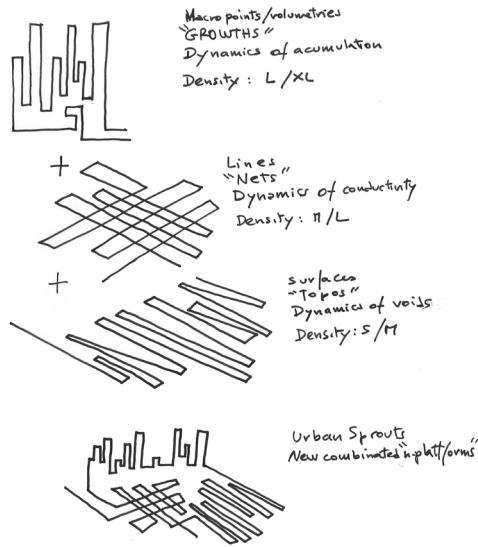 Macro points/volumetries
"GROWTHS"
Dynamics of acumulation
Density: L/XL
+
Lines
"NETS"
Dynamics of conductivity
Density: M/L
+
surfaces
"Topos"
Dynamics of voids
Density: S/M
Urban Sprouts
New combinated "n-platforms"